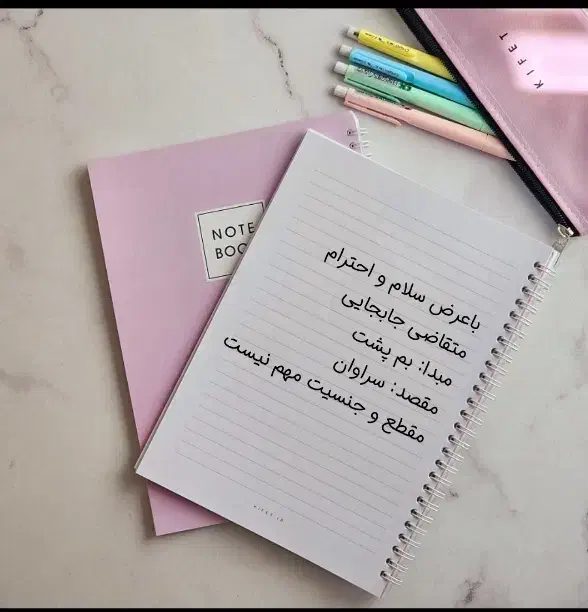 KIFET
NOTE
BOO
باعرض سلام و احترام
متقاضی جابجایی
مبدا: بم پشت
مقصد: سراوان
مقطع و جنسیت مهم نیست
KIFET.IR